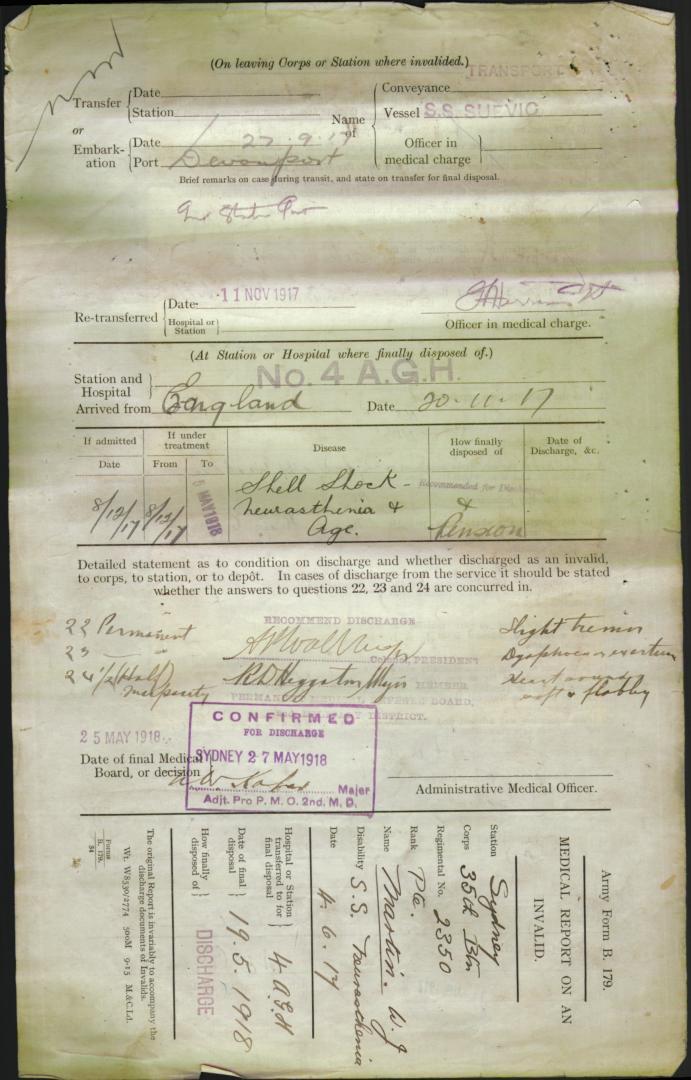 (On leaving Corps or Station where invalided.)
TRANSPORT
Transfer
Date
Station
or
Embark-
ation
Date 27.9.17
Port Devonport
Name
of
Conveyance
Vessel S.S. SUEVIC
Officer in
medical charge
Brief remarks on case during transit, and state on transfer for final disposal.
Re-transferred
Date 11 NOV 1917
Hospital or
Station
Officer in medical charge.
(At Station or Hospital where finally disposed of.)
Station and
Hospital
No. 4 A.G.H.
Arrived from England Date 20.11.17
If admitted
If under
treatment
Disease
How finally
disposed of
Date of
Discharge, &c.
Date From To
8/12/17 8/12/17 MAY 1918
Shell Shock -
Neurasthenia &
Age.
Recommended for Discharge
&
Pension
Detailed statement as to condition on discharge and whether discharged as an invalid,
to corps, to station, or to depôt. In cases of discharge from the service it should be stated
whether the answers to questions 22, 23 and 24 are concurred in.
22 Permanent "
23 — "
24 1/2 (Half) incapacity
RECOMMEND DISCHARGE
PRESIDENT
MEMBER
PERMANENT BOARD,
DISTRICT.
Slight tremor
Dyspnoea on exertion
Heart sounds
soft & flabby
25 MAY 1918
Date of final Medical
Board, or decision
CONFIRMED
FOR DISCHARGE
SYDNEY 27 MAY 1918
Major
Adjt. Pro P. M. O. 2nd. M. D.
Administrative Medical Officer.
Army Form B. 179.
MEDICAL REPORT ON AN
INVALID.
Station Sydney
Corps 35th Btn
Regimental No. 2350
Rank Pte.
Name Martin. W. J
Disability S.S. Neurasthenia
Date 4.6.17
Hospital or Station
transferred to for
final disposal
4 A.G.H
Date of final
disposal
19.5.1918
How finally
disposed of
DISCHARGE
The original Report is invariably to accompany the
discharge documents of Invalids.
Wt. W8530/2774 500M 9-15 M.&C.Ld.
Forms
B. 179.
34